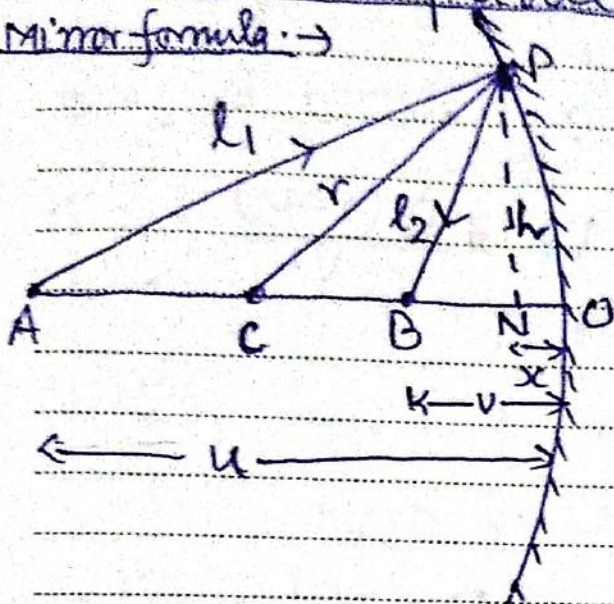 Mirror formula :→
P
l1
r
l2
h
A
C
B
N
O
x
v
u